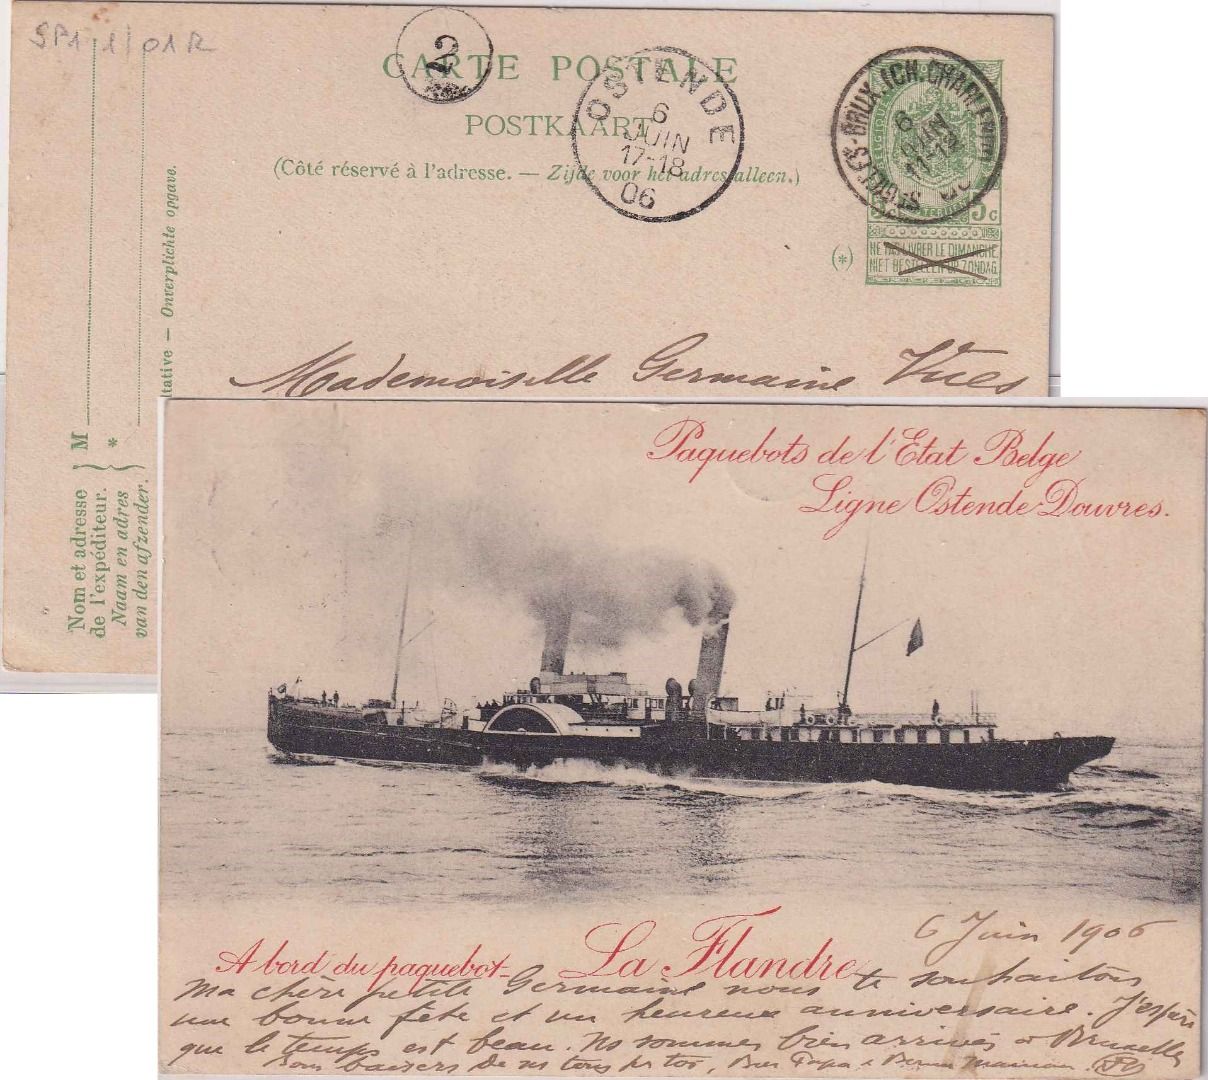 SP1 1/01R
2
CARTE POSTALE
POSTKAART
(Côté réservé à l'adresse. — Zijde voor het adres alleen.)
OSTENDE
6
JUIN
17-18
06
6
JUIN
11-12
5c
(*)
NE PAS LIVRER LE DIMANCHE.
NIET BESTELLEN OP ZONDAG.
Mademoiselle Germaine
M
*
tative — Onverplichte opgave.
Nom et adresse
de l'expéditeur.
Naam en adres
van den afzender.
Paquebots de l'Etat Belge
Ligne Ostende-Douvres.
6 Juin 1906
A bord du paquebot- La Flandre
Ma chère petite Germaine nous te souhaitons
une bonne fête et un heureux anniversaire. J'espère
que le temps est beau. Ns sommes bien arrivés à Bruxelles
Bons baisers de ns tous pr toi, Bon Papa &